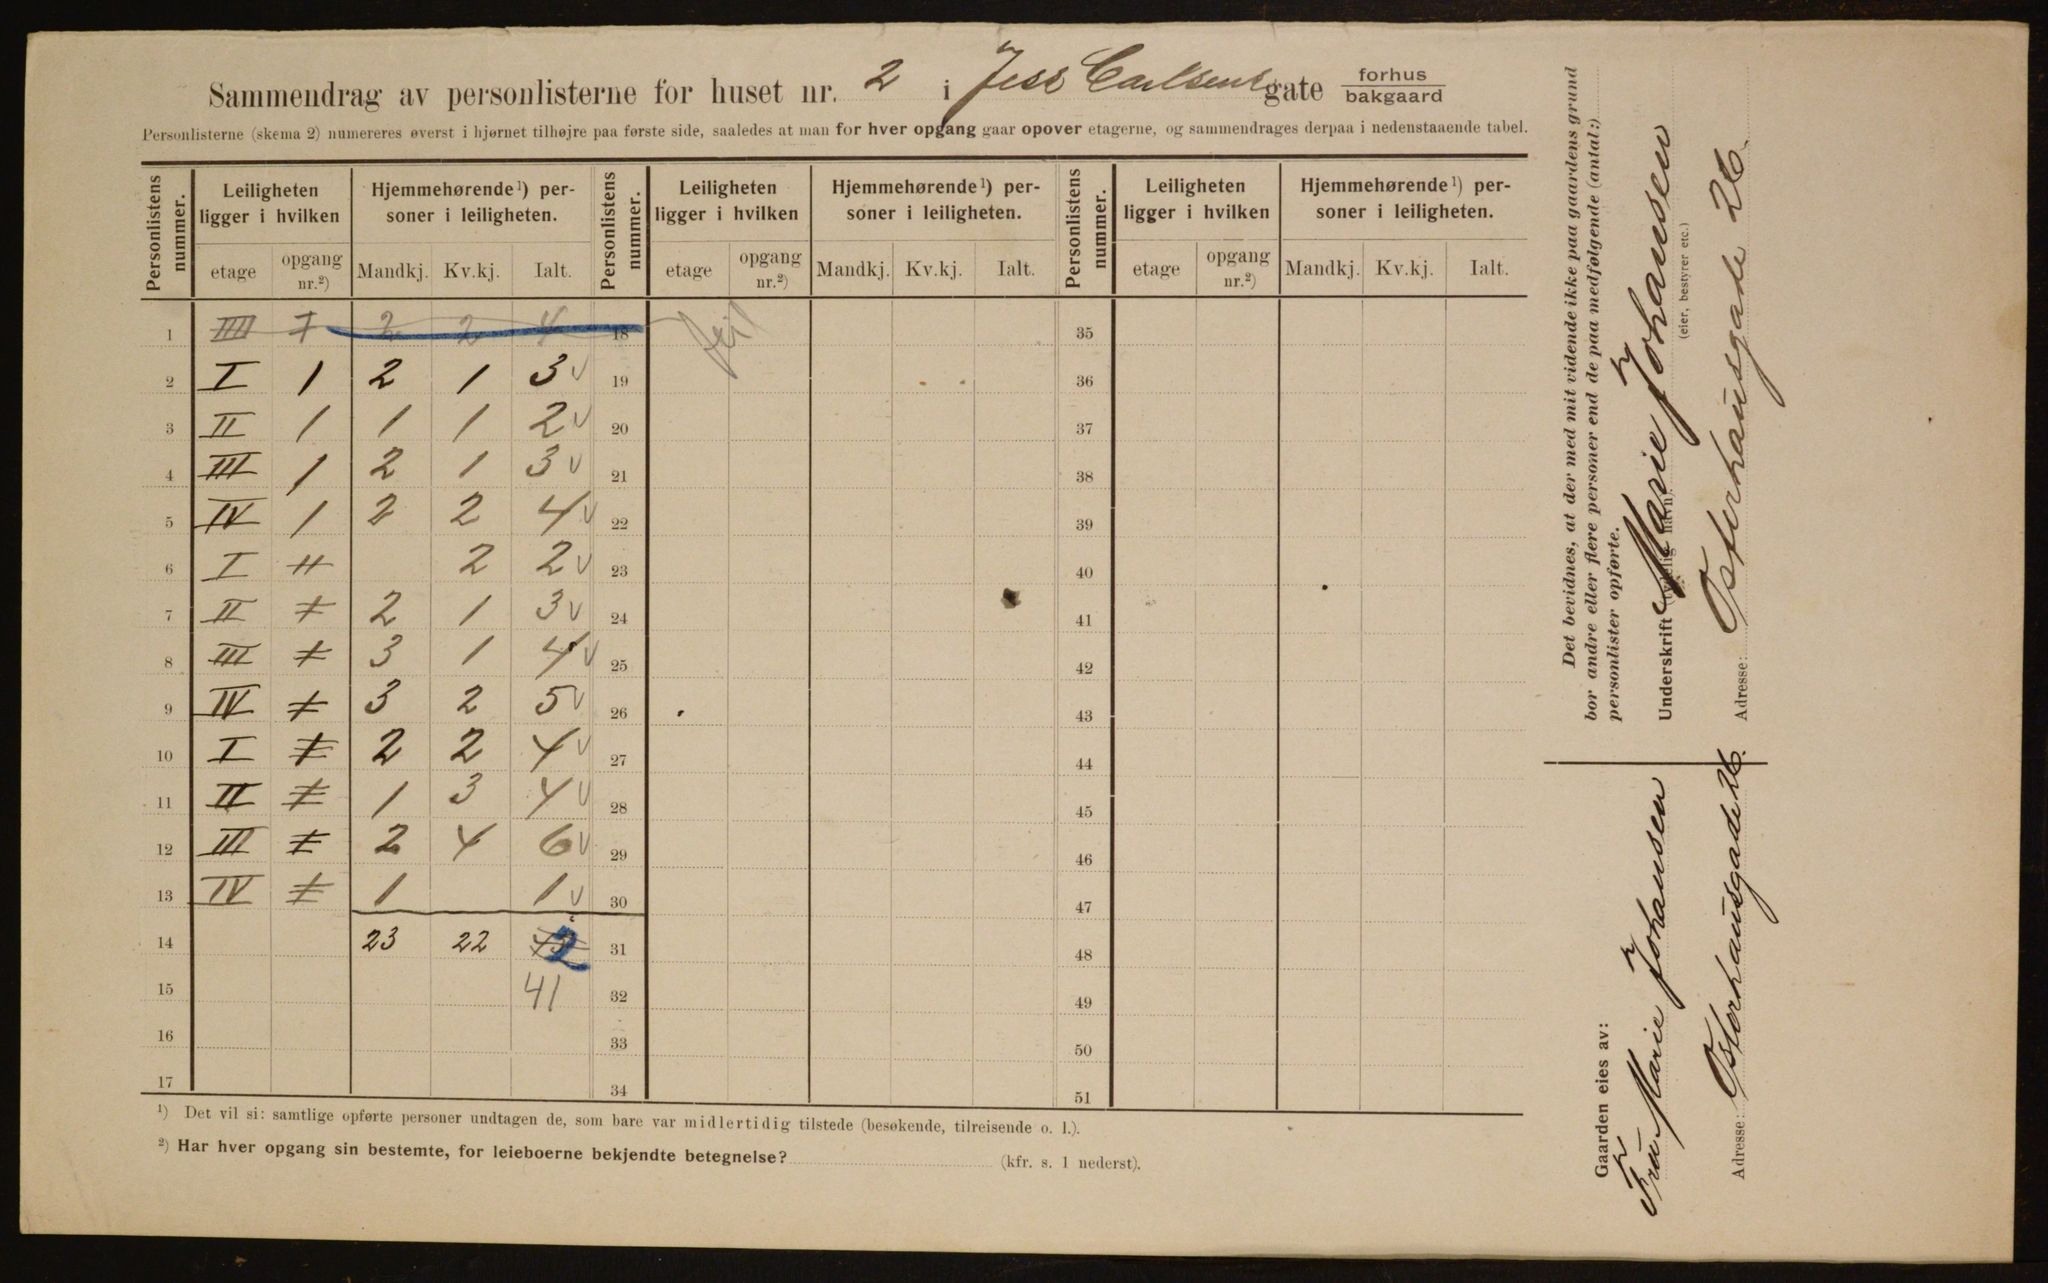 Sammendrag av personlisterne for huset nr. 2 i Jess Carlsens gate forhus / bakgaard
Personlisterne (skema 2) numereres øverst i hjørnet tilhøjre paa første side, saaledes at man for hver opgang gaar opover etagerne, og sammendrages derpaa i nedenstaaende tabel.
Personlistens nummer. | Leiligheten ligger i hvilken | Hjemmehørende ¹) personer i leiligheten. | Personlistens nummer. | Leiligheten ligger i hvilken | Hjemmehørende ¹) personer i leiligheten. | Personlistens nummer. | Leiligheten ligger i hvilken | Hjemmehørende ¹) personer i leiligheten.
etage | opgang nr.²) | Mandkj. | Kv.kj. | Ialt. | etage | opgang nr.²) | Mandkj. | Kv.kj. | Ialt. | etage | opgang nr.²) | Mandkj. | Kv.kj. | Ialt.
1 | IIII | I | 2 | 2 | 4 | 18 | feil | 35
2 | I | 1 | 2 | 1 | 3 v | 19 | 36
3 | II | 1 | 1 | 1 | 2 v | 20 | 37
4 | III | 1 | 2 | 1 | 3 v | 21 | 38
5 | IV | 1 | 2 | 2 | 4 v | 22 | 39
6 | I | II | | 2 | 2 v | 23 | 40
7 | II | 2 | 1 | 3 v | 24 | 41
8 | III | 3 | 1 | 4 v | 25 | 42
9 | IV | 3 | 2 | 5 v | 26 | 43
10 | I | 2 | 2 | 4 v | 27 | 44
11 | II | 1 | 3 | 4 v | 28 | 45
12 | III | 2 | 4 | 6 v | 29 | 46
13 | IV | 1 | | 1 v | 30 | 47
14 | 23 | 22 | 2 | 31 | 48
15 | 41 | 32 | 49
16 | 33 | 50
17 | 34 | 51
¹) Det vil si: samtlige opførte personer undtagen de, som bare var midlertidig tilstede (besøkende, tilreisende o. l.).
²) Har hver opgang sin bestemte, for leieboerne bekjendte betegnelse? (kfr. s. 1 nederst).
Det bevidnes, at der med mit vidende ikke paa gaardens grund
bor andre eller flere personer end de paa medfølgende (antal:)
personlister opførte.
Underskrift (tydelig navn) Marie Johansen
(eier, bestyrer etc.)
Adresse: Osterhausgade 26.
Gaarden eies av:
Fru Marie Johansen
Adresse: Osterhausgade 26.